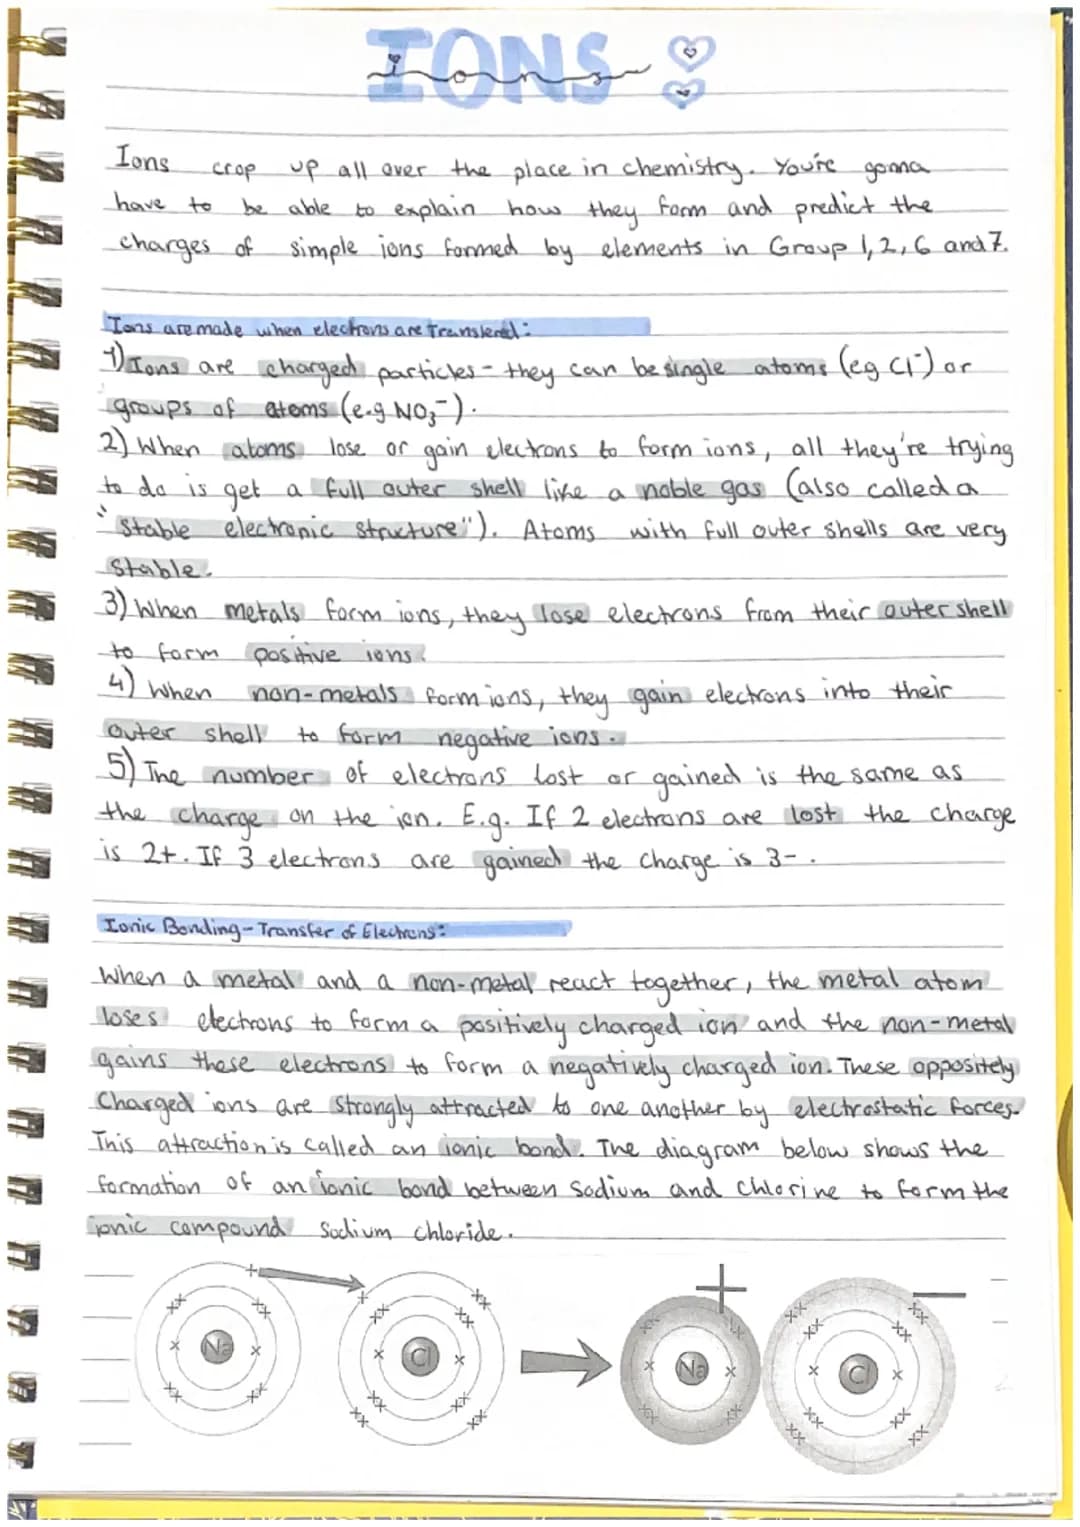 IONS
ions
Ions crop up all over the place in chemistry. You're gonna
have to be able to explain how they form and predict the
charges of simple ions formed by elements in Group 1, 2, 6 and 7.
Ions are made when electrons are Transfered:
1) Ions are charged particles - they can be single atoms (eg Cl⁻) or
groups of atoms (e.g NO₃⁻).
2) When atoms lose or gain electrons to form ions, all they're trying
to do is get a full outer shell like a noble gas (also called a
"stable electronic structure"). Atoms with full outer shells are very
stable.
3) When metals form ions, they lose electrons from their outer shell
to form positive ions.
4) When non-metals form ions, they gain electrons into their
outer shell to form negative ions.
5) The number of electrons lost or gained is the same as
the charge on the ion. E.g. If 2 electrons are lost the charge
is 2+. If 3 electrons are gained the charge is 3-.
Ionic Bonding - Transfer of Electrons:
When a metal and a non-metal react together, the metal atom
loses electrons to form a positively charged ion and the non-metal
gains these electrons to form a negatively charged ion. These oppositely
Charged ions are strongly attracted to one another by electrostatic forces.
This attraction is called an ionic bond. The diagram below shows the
formation of an ionic bond between Sodium and Chlorine to form the
ionic compound Sodium chloride.
+ −
Na Cl Na Cl